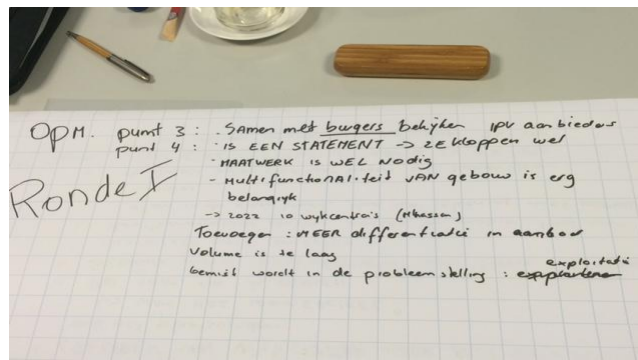 OPM. punt 3 : . Samen met burgers bekijken ipv aanbieders
punt 4 : . IS EEN STATEMENT -> ze kloppen wel
. MAATWERK IS WEL NODIG
Ronde I
- Multifunctionaliteit VAN gebouw is erg
belangrijk
-> 2022 10 wijkcentra's
Toevoegen : MEER differentiatie in aanbod
Volume is te laag
gemist wordt in de probleemstelling : exploitatie